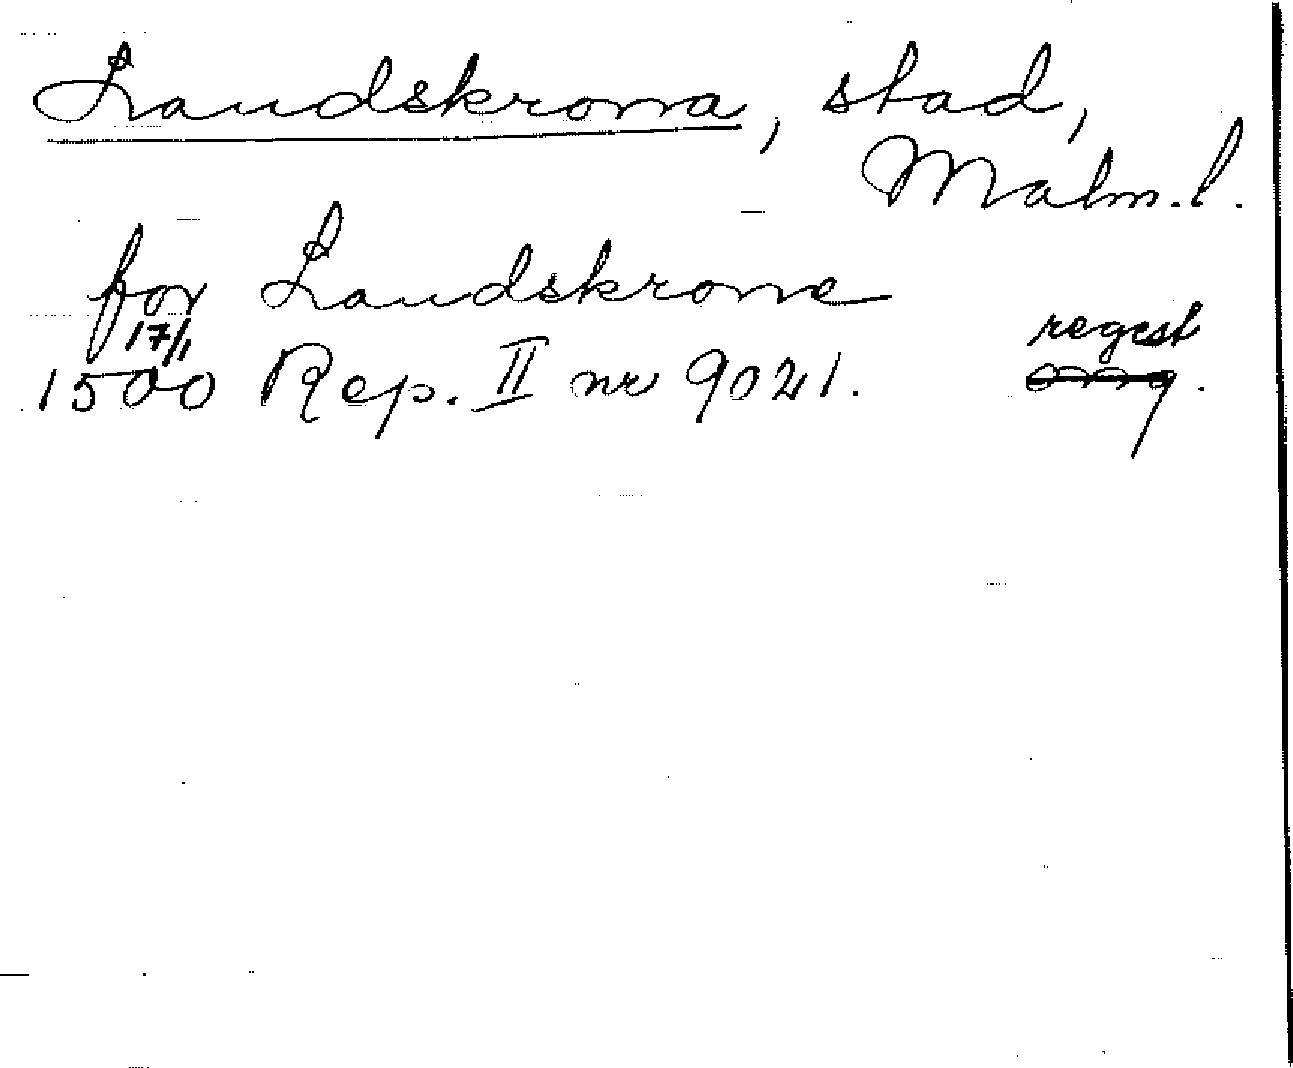 Landskrona, stad,
Malm.l.
for Landskrone
17/1 regest
1500 Rep. II nr 9021. omg.